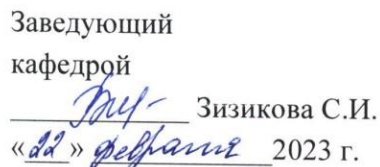 Заведующий
кафедрой
Зизикова С.И.
«22» февраля 2023 г.